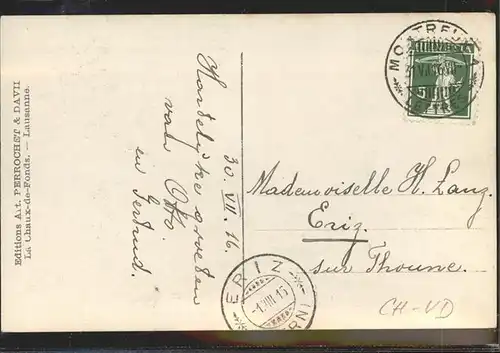 Editions Art. PERROCHET & DAVID
La Chaux-de-Fonds. — Lausanne.
30. VII. 16.
Hartelijke groeten
van Otto
en Gertrud.
MONTREUX
LETTRES
Mademoiselle H. Lanz.
Eriz.
sur Thoune.
ERIZ
(BERN)
CH-VD